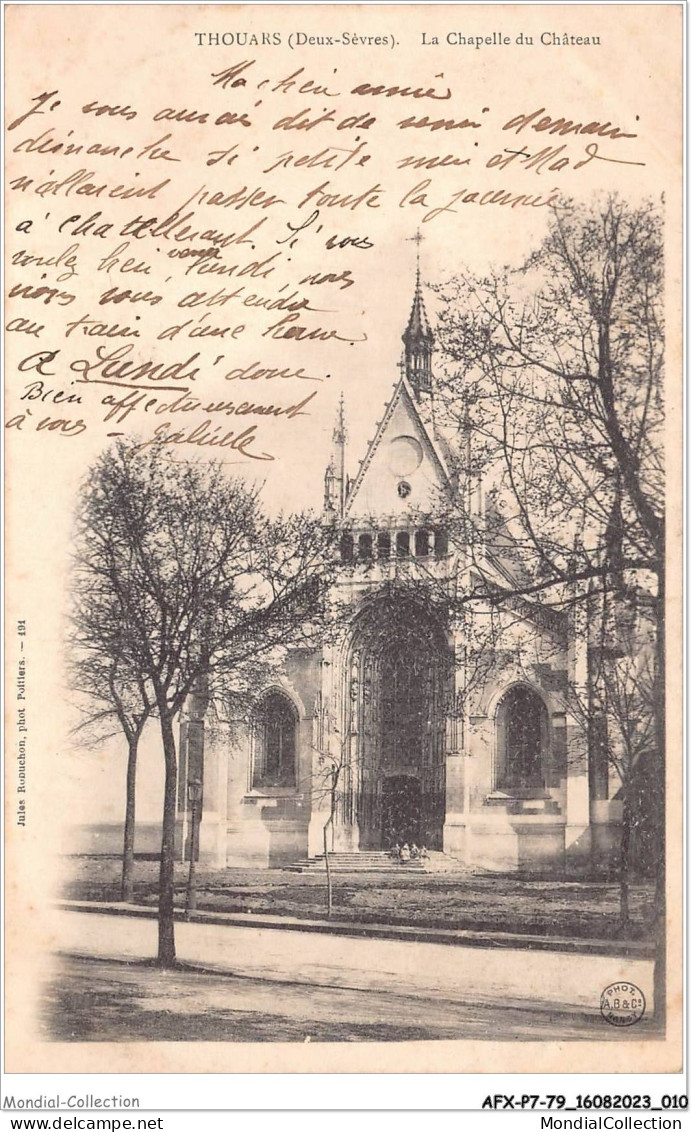 THOUARS (Deux-Sèvres). La Chapelle du Château
Ma chère amie
Je vous aurais dit de venir demain
dimanche si petite mère et Mad
n'allaient passer toute la journée
à Chatellerault. Si vous
voulez bien venir lundi, nous
irons vous attendre
au train d'une heure.
A Lundi donc.
Bien affectueusement
à vous - Gabrielle
Jules Robuchon, phot Poitiers. — 191
PHOT.
A.B & Cº
NANCY
Mondial-Collection
AFX-P7-79_16082023_010
MONDIALCollection